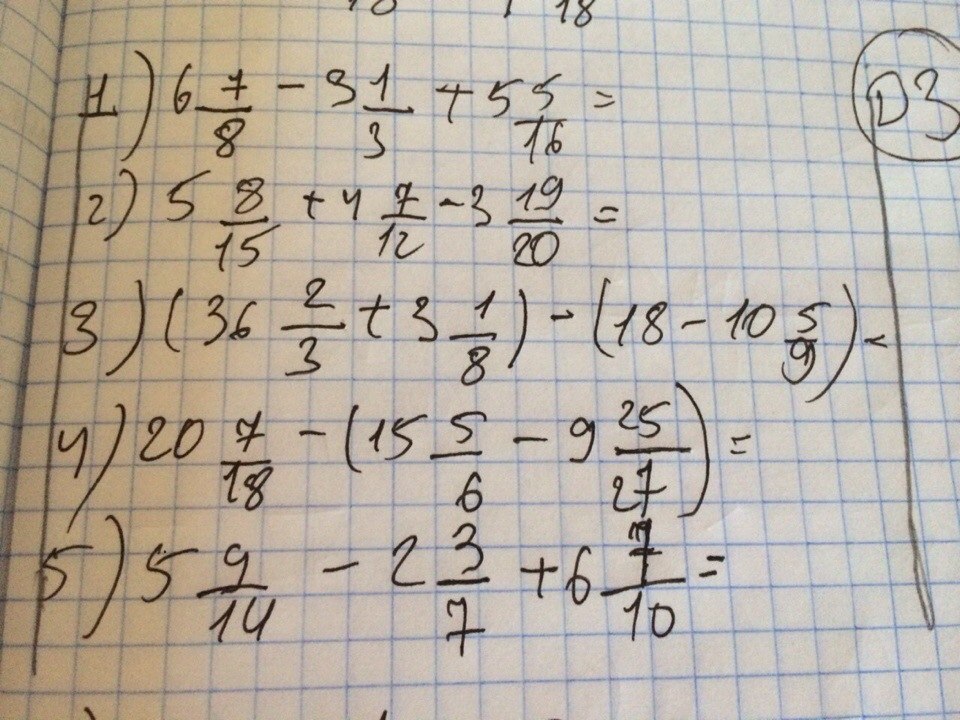 18 18
ДЗ
1) 6 7/8 - 3 1/3 + 5 5/16 =
2) 5 8/15 + 4 7/12 - 3 19/20 =
3) (36 2/3 + 3 1/8) - (18 - 10 5/9) =
4) 20 7/18 - (15 5/6 - 9 25/27) =
5) 5 9/14 - 2 3/7 + 6 7/10 =